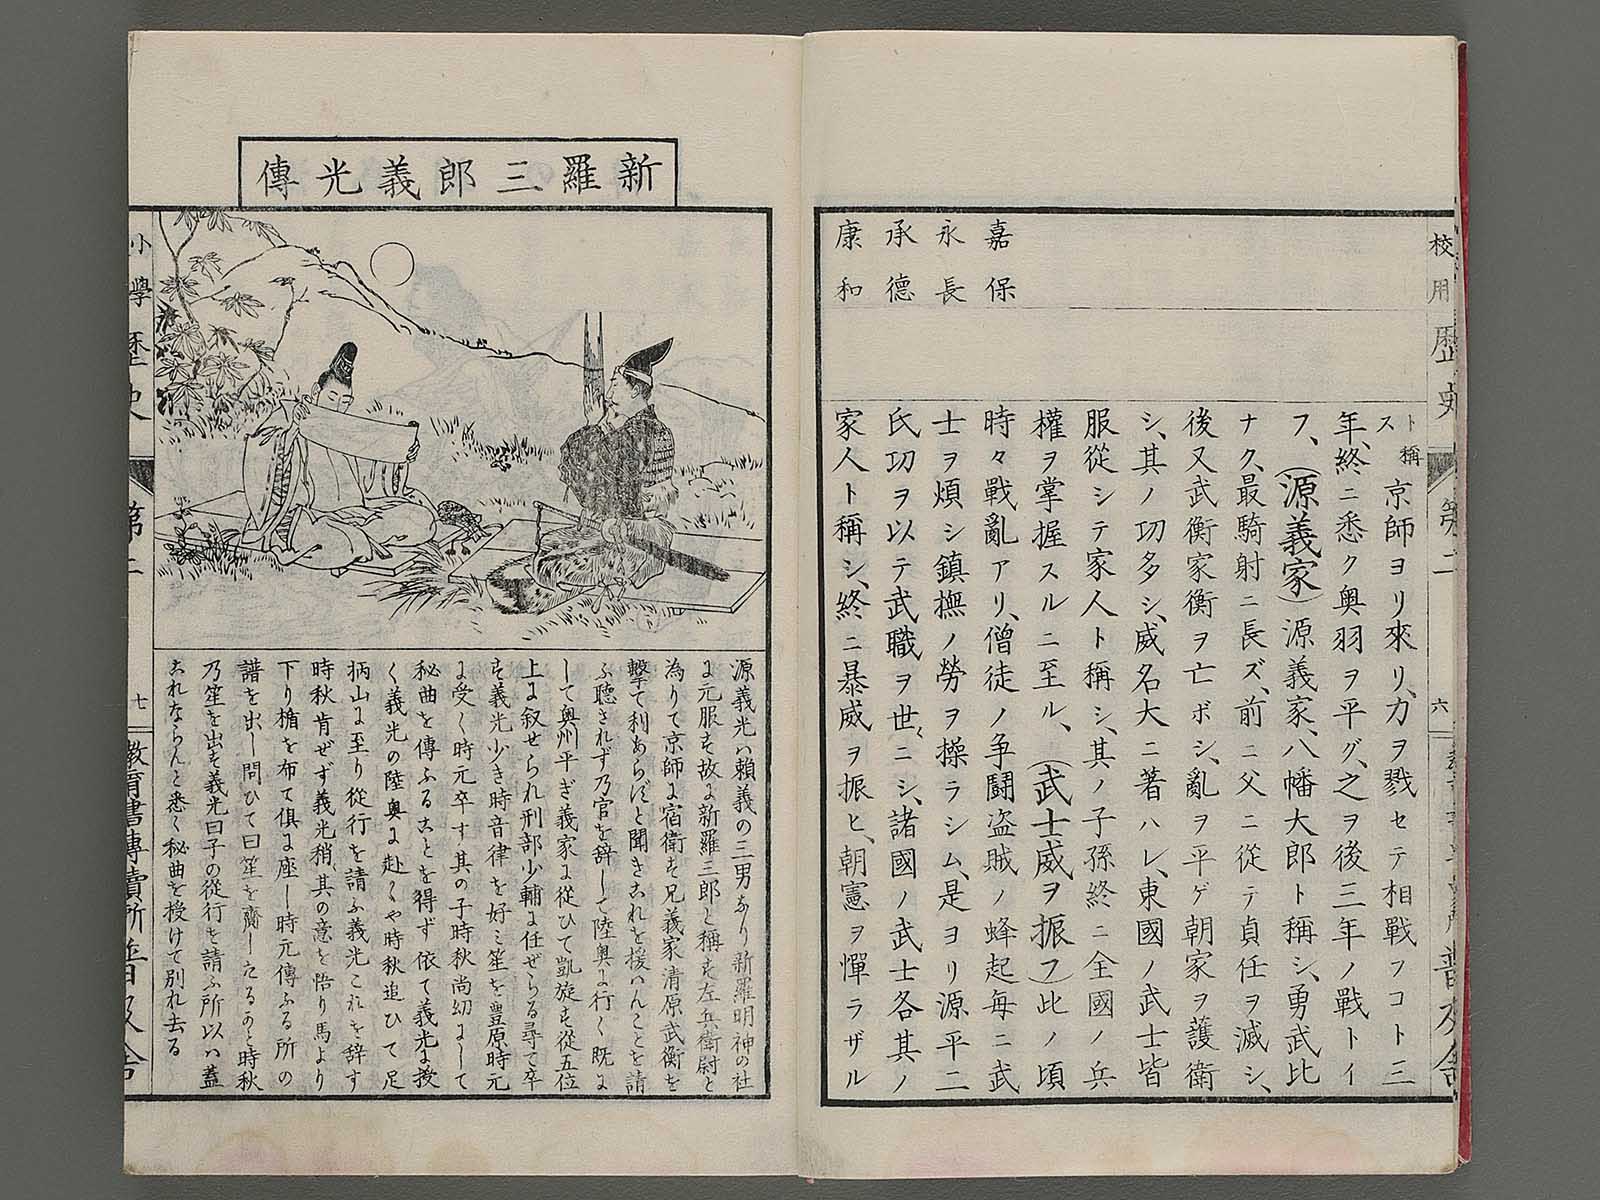 校用歷史 第二 六
嘉保
永長
承德
康和
ト稱
ス
京師ヨリ來リ、力ヲ戮セテ相戰フコト三
年、終ニ悉ク奥羽ヲ平グ、之ヲ後三年ノ戰トイ
フ、(源義家)源義家、八幡大郎ト稱シ、勇武比
ナク、最騎射ニ長ズ、前ニ父ニ從テ貞任ヲ滅シ、
後又武衡家衡ヲ亡ボシ、亂ヲ平ゲ朝家ヲ護衛
シ、其ノ功多シ、威名大ニ著ハレ、東國ノ武士皆
服從シテ家人ト稱シ、其ノ子孫終ニ全國ノ兵
權ヲ掌握スルニ至ル、(武士威ヲ振フ)此ノ頃
時々戰亂アリ、僧徒ノ争鬪盗賊ノ蜂起毎ニ武
士ヲ煩シ鎮撫ノ勞ヲ操ラシム、是ヨリ源平二
氏功ヲ以テ武職ヲ世々ニシ、諸國ノ武士各其ノ
家人ト稱シ、終ニ暴威ヲ振ヒ、朝憲ヲ憚ラザル
新羅三郎義光傳
源義光ハ頼義の三男なり新羅明神の社
に元服す故に新羅三郎と稱す左兵衛尉と
為りて京師に宿衛す兄義家清原武衡を
擊て利あらずと聞きこれを援はんことを請
ふ聴されず乃官を辞して陸奥に行く既に
して奥州平ぎ義家に從ひて凱旋す從五位
上に叙せられ刑部少輔に任ぜらる尋て卒
す義光少き時音律を好ミ笙を豊原時元
に受く時元卒す其の子時秋尚幼にして
秘曲を傳ふることを得ず依て義光に授
く義光の陸奥に赴くや時秋追ひて足
柄山に至り從行を請ふ義光これを辞す
時秋肯ぜず義光稍其の意を悟り馬より
下り楯を布て倶に座し時元傳ふる所の
譜を出し問ひて曰笙を齎したるかと時秋
乃笙を出す義光曰子の從行を請ふ所以ハ蓋
これならんと悉く秘曲を授けて別れ去る
小學歷史 第二 七 教育書專賣所普及舍